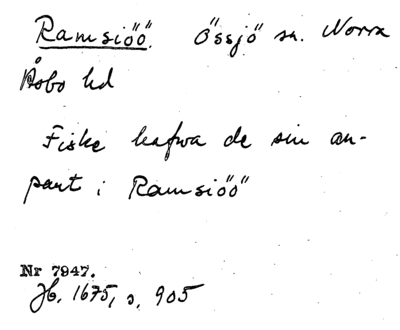 Ramsiöö. Össjö sn. Norra
Åsbo hd
Fiske hafwa de sin an-
part i Ramsiöö
Nr 7947.
Jb. 1675, s. 905